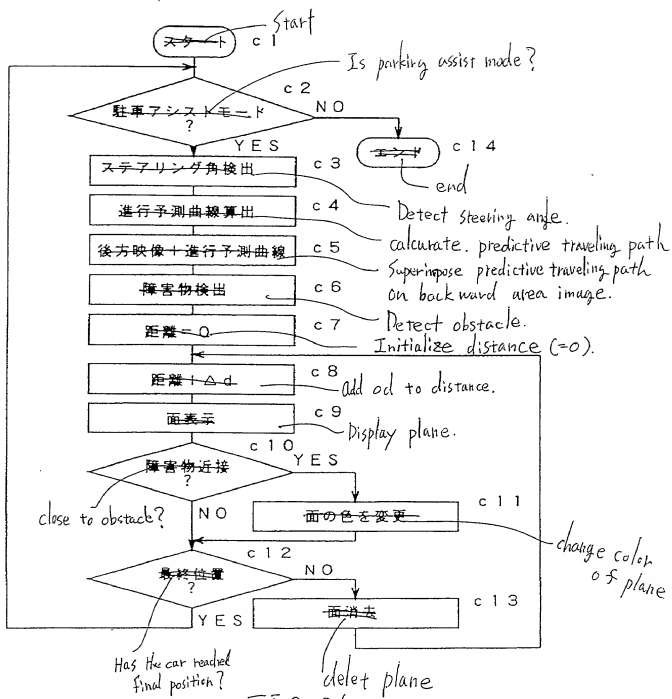 スタート c1 Start
Is parking assist mode?
c2
駐車アシストモード NO
?
エンド c14
YES
end
ステアリング角検出 c3
Detect steering angle.
進行予測曲線算出 c4
calcurate. predictive traveling path
後方映像+進行予測曲線 c5
Superimpose predictive traveling path
on backward area image.
障害物検出 c6
Detect obstacle.
距離=0 c7
Initialize distance (=0).
距離+△d c8
add od to distance.
面表示 c9
Display plane.
c10
障害物近接 YES
?
close to obstacle?
NO
面の色を変更 c11
change color
of plane
c12
最終位置 NO
?
YES
面消去 c13
Has the car reached
final position?
delet plane